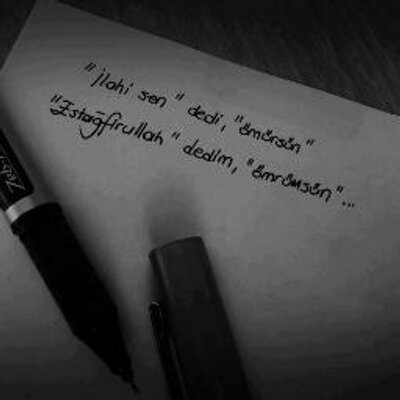 "İlahi sen" dedi, "ömürsün"
"Estağfirullah" dedim, "ömrümsün"...
Zebra